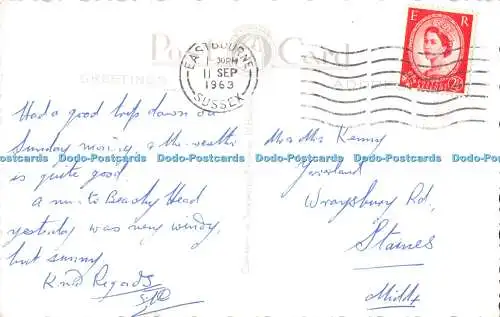 Post Card
GREETINGS
EASTBOURNE
11 SEP
1963
SUSSEX
E R
Had a good trip down on
Sunday morning, & the weather
is quite good
a run to Beachy Head
yesterday was very windy,
but sunny.
Kind Regards
Mr & Mrs Kenny
Wraysbury Rd,
Staines
Middx
Dodo-Postcards Dodo-Postcards Dodo-Postcards Dodo-Postcards Dodo-Postcards